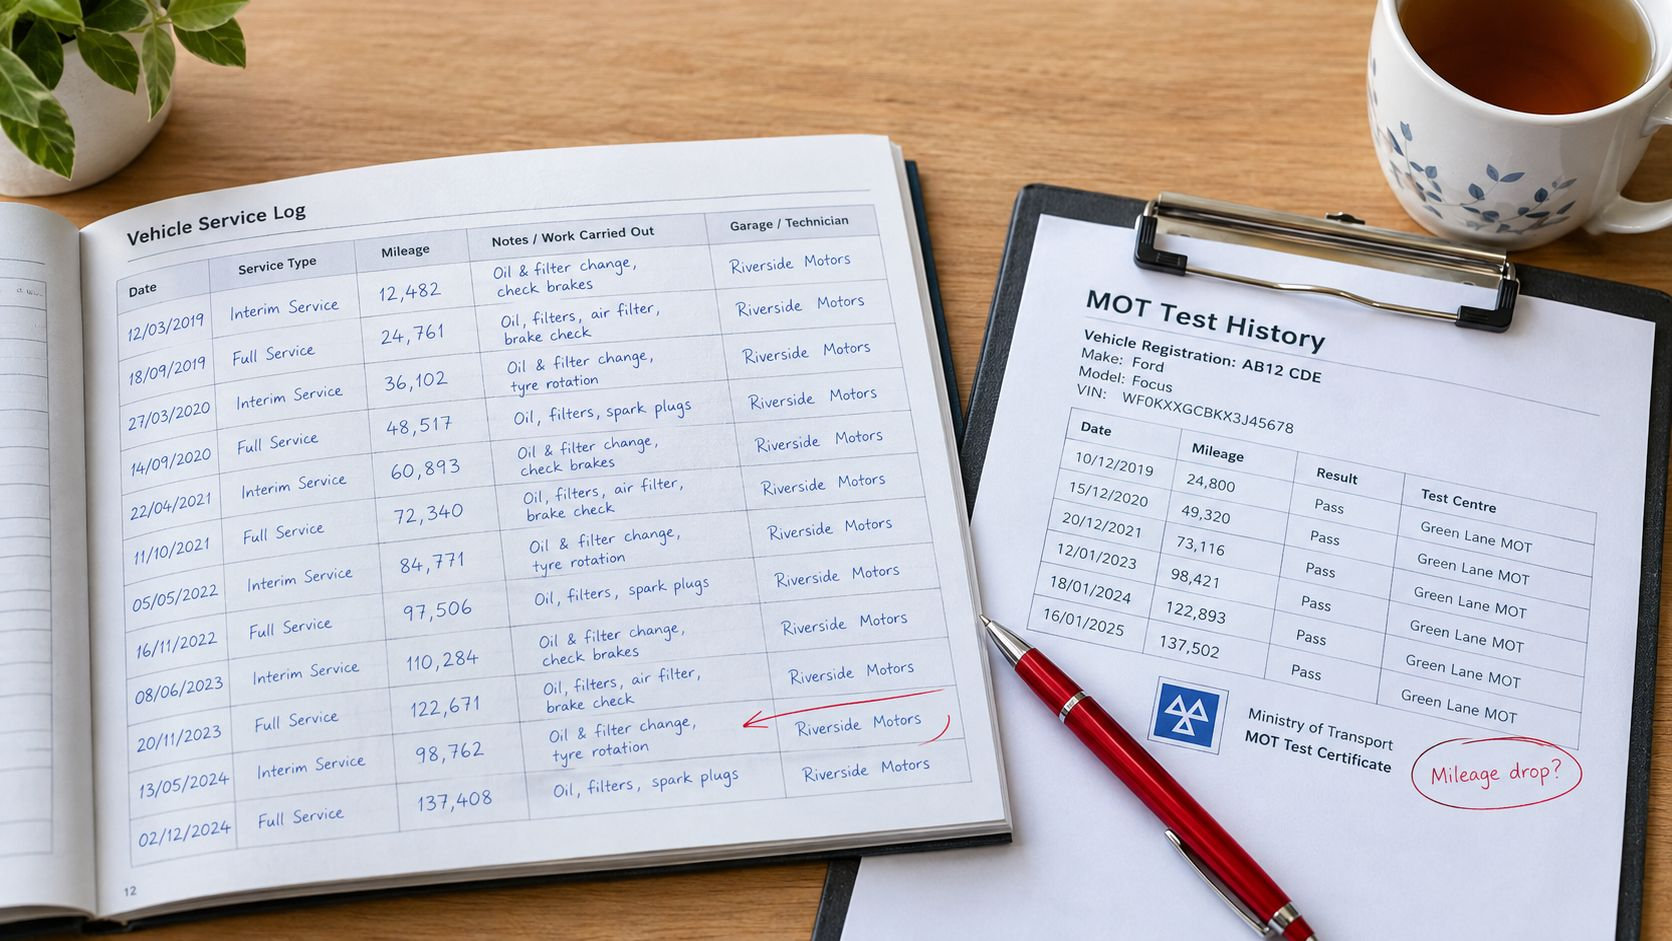 Vehicle Service Log
Date Service Type Mileage Notes / Work Carried Out Garage / Technician
12/03/2019 Interim Service 12,482 Oil & filter change, check brakes Riverside Motors
18/09/2019 Full Service 24,761 Oil, filters, air filter, brake check Riverside Motors
27/03/2020 Interim Service 36,102 Oil & filter change, tyre rotation Riverside Motors
14/09/2020 Full Service 48,517 Oil, filters, spark plugs Riverside Motors
22/04/2021 Interim Service 60,893 Oil & filter change, check brakes Riverside Motors
11/10/2021 Full Service 72,340 Oil, filters, air filter, brake check Riverside Motors
05/05/2022 Interim Service 84,771 Oil & filter change, tyre rotation Riverside Motors
16/11/2022 Full Service 97,506 Oil, filters, spark plugs Riverside Motors
08/06/2023 Interim Service 110,284 Oil & filter change, check brakes Riverside Motors
20/11/2023 Full Service 122,671 Oil, filters, air filter, brake check Riverside Motors
13/05/2024 Interim Service 98,762 Oil & filter change, tyre rotation Riverside Motors
02/12/2024 Full Service 137,408 Oil, filters, spark plugs Riverside Motors
12
MOT Test History
Vehicle Registration: AB12 CDE
Make: Ford
Model: Focus
VIN: WF0KXXGCBKX3J45678
Date Mileage Result Test Centre
10/12/2019 24,800 Pass Green Lane MOT
15/12/2020 49,320 Pass Green Lane MOT
20/12/2021 73,116 Pass Green Lane MOT
12/01/2023 98,421 Pass Green Lane MOT
18/01/2024 122,893 Pass Green Lane MOT
16/01/2025 137,502 Pass Green Lane MOT
Ministry of Transport
MOT Test Certificate
Mileage drop?